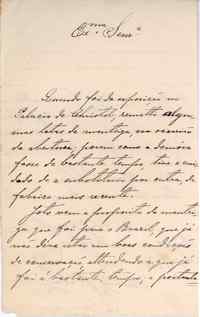 Ex.ma Senr.ª
Quando foi da exposição no
Palacio de Christal, remetti algu-
mas latas de manteiga, na occasião
da abertura, porem como a demora
fosse de bastante tempo, tive o cui-
dado de a substituir por outra, de
fabrico mais recente.
Isto vem a proposito da mantei-
ga que foi para o Brazil, que já
não devia estar em boas condições
de conservação attendendo a que já
foi á bastante tempo, e portanto